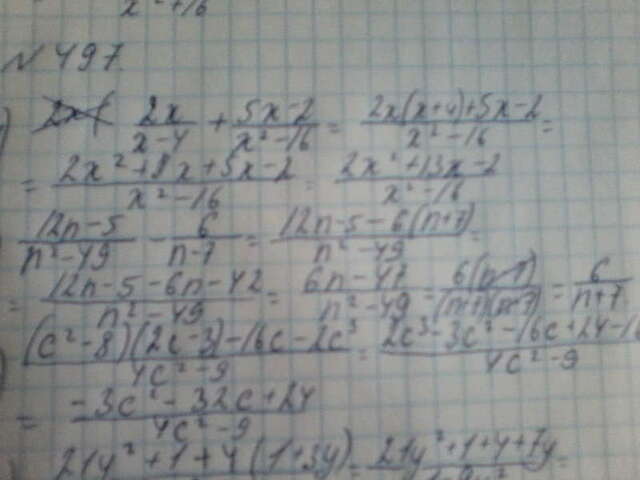 x² - 16
N 497
2x/(x-4) + (5x-2)/(x²-16) = (2x(x+4)+5x-2)/(x²-16) =
= (2x²+8x+5x-2)/(x²-16) = (2x²+13x-2)/(x²-16)
(12n-5)/(n²-49) - 6/(n-7) = (12n-5-6(n+7))/(n²-49) =
= (12n-5-6n-42)/(n²-49) = (6n-47)/(n²-49) = 6(n-7)/((n+7)(n-7)) = 6/(n+7)
((c²-8)(2c-3)-16c-2c³)/(4c²-9) = (2c³-3c²-16c+24-16/(4c²-9)
= (-3c²-32c+24)/(4c²-9)
21y²+1+4(1+3y) = 21y²+1+4+7y =